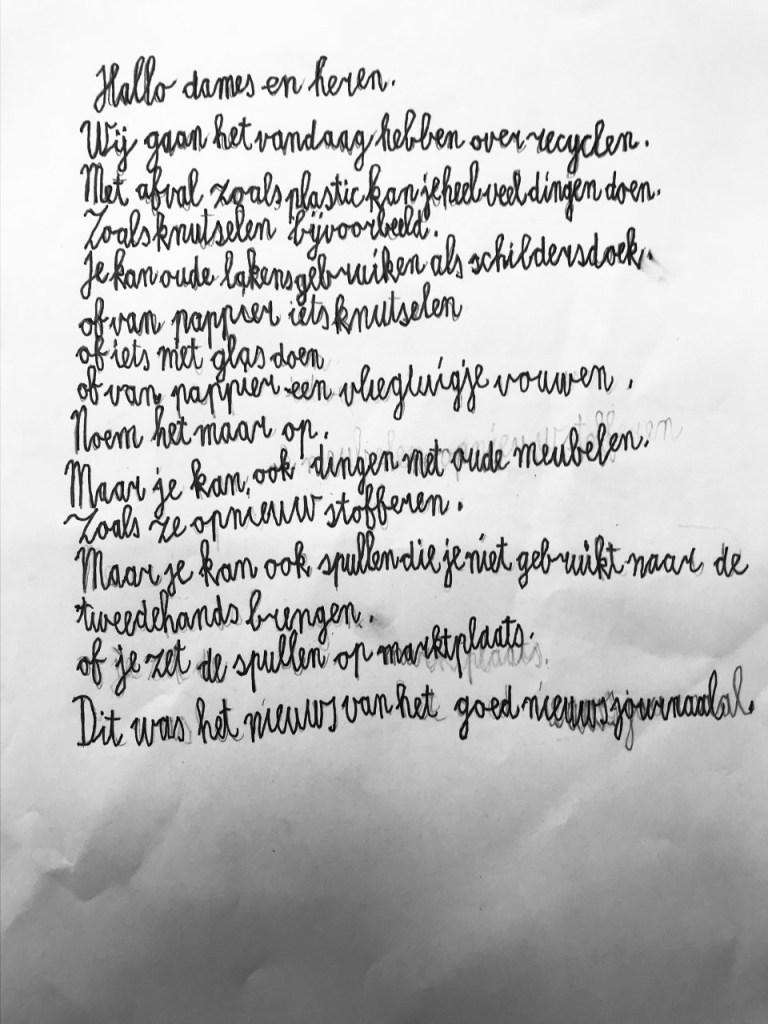 Hallo dames en heren.
Wij gaan het vandaag hebben over recyclen.
Met afval zoals plastic kan je heel veel dingen doen.
Zoals knutselen bijvoorbeeld.
Je kan oude lakens gebruiken als schildersdoek.
of van pappier iets knutselen
of iets met glas doen
of van pappier een vliegtuigje vouwen.
Noem het maar op.
Maar je kan ook dingen met oude meubelen.
Zoals ze opnieuw stofferen.
Maar je kan ook spullen die je niet gebruikt naar de
tweedehands brengen.
of je zet de spullen op marktplaats.
Dit was het nieuws van het goed nieuwsjournaal.